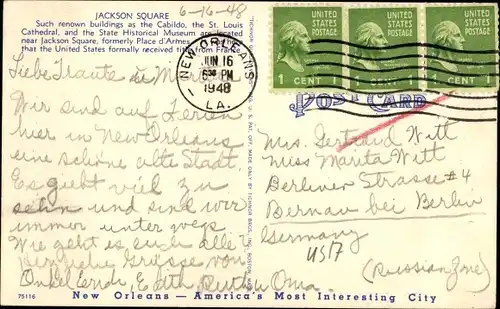 JACKSON SQUARE
6-16-48
Such renown buildings as the Cabildo, the St. Louis
Cathedral, and the State Historical Museum are located
near Jackson Square, formerly Place d'Armes
that the United States formally received title from France.
NEW ORLEANS
JUN 16
6 30 PM
1948
LA.
UNITED STATES POSTAGE
1 CENT 1
UNITED STATES POSTAGE
1 CENT 1
UNITED STATES POSTAGE
1 CENT 1
POST CARD
Liebe Traute
Wir sind auf Ferien
hier in New Orleans
eine schöne alte Stadt.
Es giebt viel zu
sehn und sind wir
immer unter wegs
Wie geht es euch alle
Herzliche Grüsse von
Onkel Erich, Edith Oma.
Mrs. Gertraud Witt
Miss Marita Witt
Berliner Strasse #4
Bernau bei Berlin
Germany
(Russian Zone)
75116
New Orleans — America's Most Interesting City